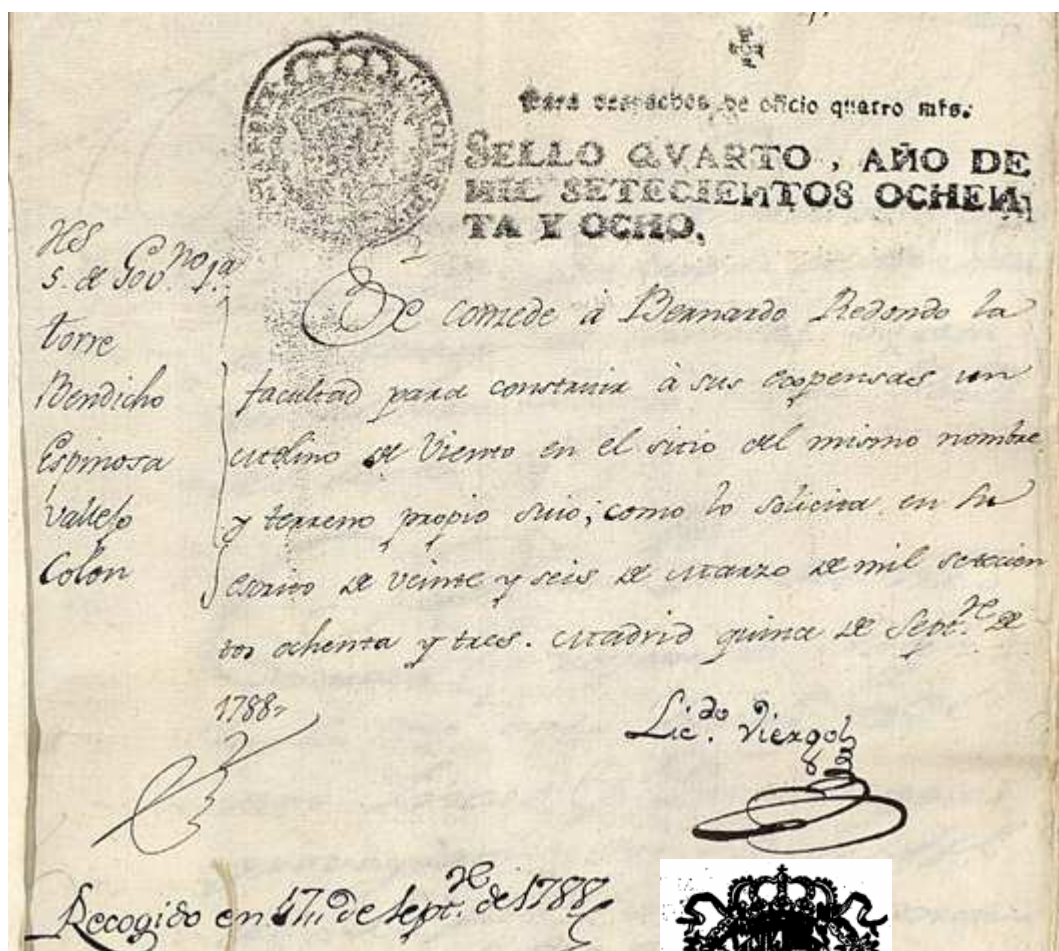 Para despachos de oficio quatro mrs.
SELLO QVARTO, AÑO DE
MIL SETECIENTOS OCHEN
TA Y OCHO.
S. de Gov.no 1.a
torre
Bendicho
Espinosa
Vallejo
Colon
Se conzede à Bernardo Redondo la
facultad para construir à sus expensas un
Molino de Viento en el sitio del mismo nombre
y terreno propio suio; como lo solicita en su
escrito de veinte y seis de Marzo de mil setecien
tos ochenta y tres. Madrid quince de Sept.re de
1788
Lic.do Viergol
Recogido en 17,, de sept.re de 1788